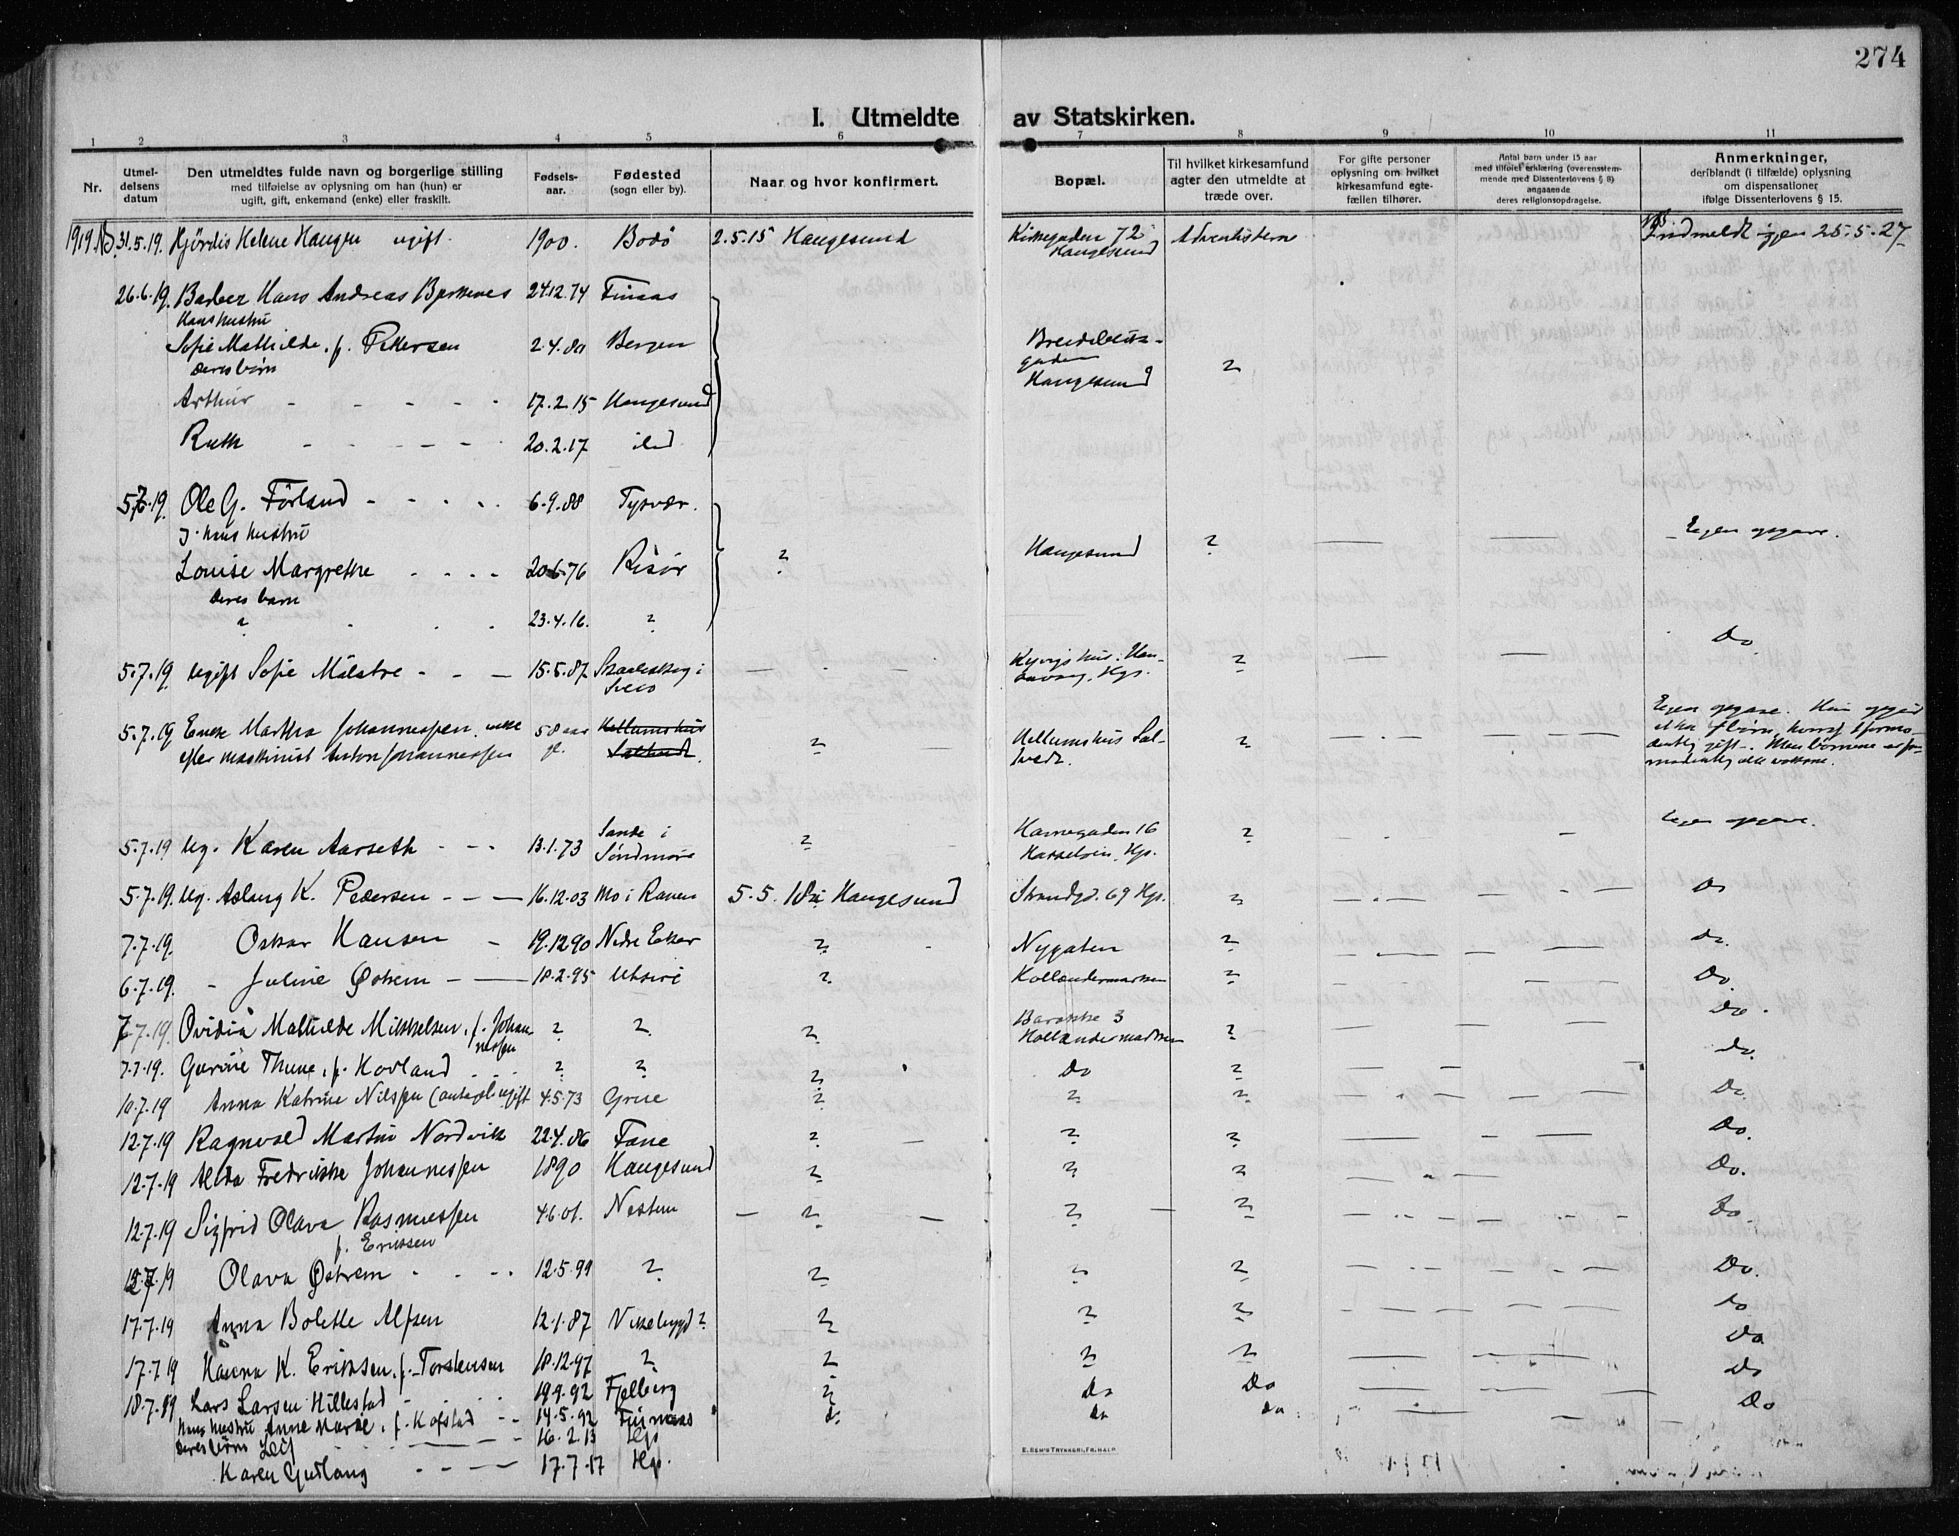 274
I. Utmeldte av Statskirken.
1 2 3 4 5 6 7 8 9 10 11
Nr.
Utmeldelsens datum
Den utmeldtes fulde navn og borgerlige stilling
med tilføielse av oplysning om han (hun) er
ugift, gift, enkemand (enke) eller fraskilt.
Fødselsaar.
Fødested
(sogn eller by).
Naar og hvor konfirmert.
Bopæl.
Til hvilket kirkesamfund
agter den utmeldte at
træde over.
For gifte personer
oplysning om hvilket
kirkesamfund egtefællen tilhører.
Antal barn under 15 aar
med tilføiet erklæring (overensstemmende med Dissenterlovens § 8)
angaaende
deres religionsopdragelse.
Anmerkninger,
deriblandt (i tilfælde) oplysning
om dispensationer
ifølge Dissenterlovens § 15.
1919 31.5.19. Hjördis Helene Haugen ugift. 1900. Bodö 2.5.15 Haugesund Kirkegaden 72 Haugesund Adventisterne Indmeldt igjen 25.5.27
26.6.19. Barber Hans Andreas 24.12.74 Finaas
Hans hustru
Sofie Mathilde, f. Pettersen 2.4.80 Bergen
deres børn
Haugesund ?
Arthur - - - - - 17.2.15 Haugesund
Ruth - - - - - 20.2.17 ibid
5.7.19. Ole G. Førland - - - - 6.9.88 Tysvær.
hans hustru
Egen opgave.
Louise Margrethe - - - - 20.6.76 Risør ? Haugesund ? — —
deres barn
? 23.4.16. ?
5.7.19. Ugift Sofie Milstre - - — 15.5.87 i Sveio — - — ? — — Do
5.7.19 Enke Martha Johannessen, enke 58 aar gl. ? ?
efter maskinist Anton Johannessen
Egen opgave.
5.7.19 Ug. Karen Aarseth - - - 13.1.73 Sande i Søndmøre ? Havnegaden 16 Hgs. ? Egen opgave.
5.7.19. Ug. Aslaug K. Pedersen - - — 16.12.03 Mo i Ranen 5.5. Haugesund Strandgd. 69 Hgs. ? Do
7.7.19. Oskar Hansen - 19.12.90 Nedre Eker ? Nygaten ? Do.
6.7.19. - Juline Østrem - — 18.2.95 Utsire ? Hollendermarken ? Do
7.7.19. Ovidia Mathilde Mikkelsen, f. Johannessen ? ? ? Barakke 3 Hollendermarken ? Do.
7.7.19. Gurine Thune, f. Hovland ? ? ? Do ? Do.
10.7.19 Anna Katrine Nilssen (antagel. ugift 4.5.73 Grue ? ? ? Do.
12.7.19 Ragnvald Martin Nordvik 22.4.86 Fane ? ? ? Do.
12.7.19 Alida Fredrikke Johannessen 1890 Haugesund ? ? ? Do.
12.7.19 Sigfrid Olava Rasmussen 4.6.01. — ? — ? — ? Do
f. Eriksen
Olava Østrem - - - - 12.5.99 ? ? ? ? Do.
17.7.19 Anna Bolette Alfsen 12.1.87 Vikebygd ? ? ? ? Do
17.7.19 Hanna K. Eriksen, f. Torstensen 18.12.97 ? ? ? ? Do
18.7.19 Lars Larsen Hillestad 19.9.92 Fjelberg ? Do Do Do
hans hustru Anne Marie, f. Kofstad - - 14.5.92 Finnaas do do do Do
deres børn Leif 16.2.13 Hgs
Karen Gudlaug - - - — 17.7.17 Hgs.
E. SEM'S TRYKKERI, FR.HALD